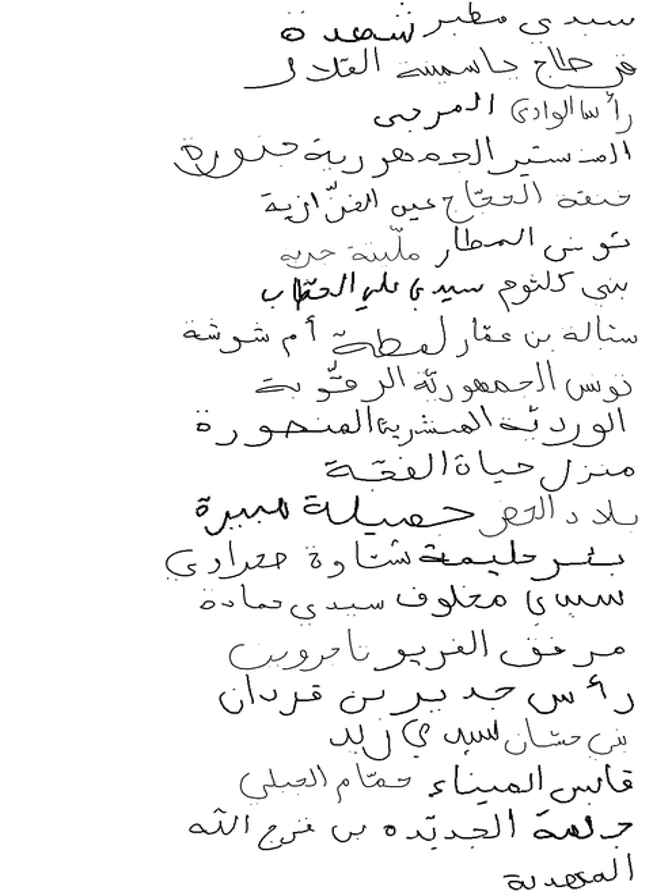 سيدي مطير شهدة
فج حلاج ياسمينة القلال
رأس الوادي المرجى
المنستير الجمهورية جنورة
خنقة الحجاج عين الغزازية
تونس المطار ملينة جربة
بني كلثوم سيدي علي الحطاب
ستالة بن عقار لمطة أم شوشة
تونس الجمهورية الرقوبة
الوردية المشرية المنصورة
منزل حياة الفجة
بلاد الحضر جميلة كبيرة
بئر حليمة شتاوة صحراوي
سيدي مخلوف سيدي حمادة
مرفق الغريو تاجروين
رأس جدير بن قردان
بني حسان سيدي زيد
قابس الميناء حمام الجبلي
جلمة الجديدة بن فرج الله
المهدية